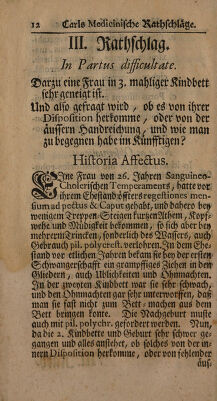 12 Carls Medicinische Rathschläge.
III. Rathschlag.
In Partus difficultate.
Darzu eine Frau in 3. mahliger Kindbett
sehr geneigt ist.
Und also gefragt wird, ob es von ihrer
Disposition herkomme, oder von der
äussern Handreichung, und wie man
zu begegnen habe im Künfftigen?
Historia Affectus.
Eine Frau von 26. Jahren Sanguineo-
Cholerischen Temperaments, hatte vor
ihrem Ehestand öffters regestiones men-
sium ad pectus & Caput gehabt, und dahero bey
wenigem Treppen-Steigen kurtzen Athem, Kopf-
wehe und Müdigkeit bekommen, so sich aber bey
mehrern Trincken, sonderlich des Wassers, auch
Gebrauch pil. polycrest. verlohren. In dem Ehe-
stand vor etlichen Jahren bekam sie bey der ersten
Schwangerschafft ein grampffiges Ziehen in den
Gliedern, auch Ublichkeiten und Ohnmachten.
In der zweyten Kindbett war sie sehr schwach,
und den Ohnmachten gar sehr unterworffen, daß
man sie fast nicht zum Bett-machen aus dem
Bett bringen konte. Die Nachgeburt muste
auch mit pil. polychr. gefordert werden. Nun,
da die 2. Kindbette und Geburt sehr schwer ge-
gangen und alles anstehet, ob solches von der in-
nern Disposition herkomme, oder von fehlender
aus.